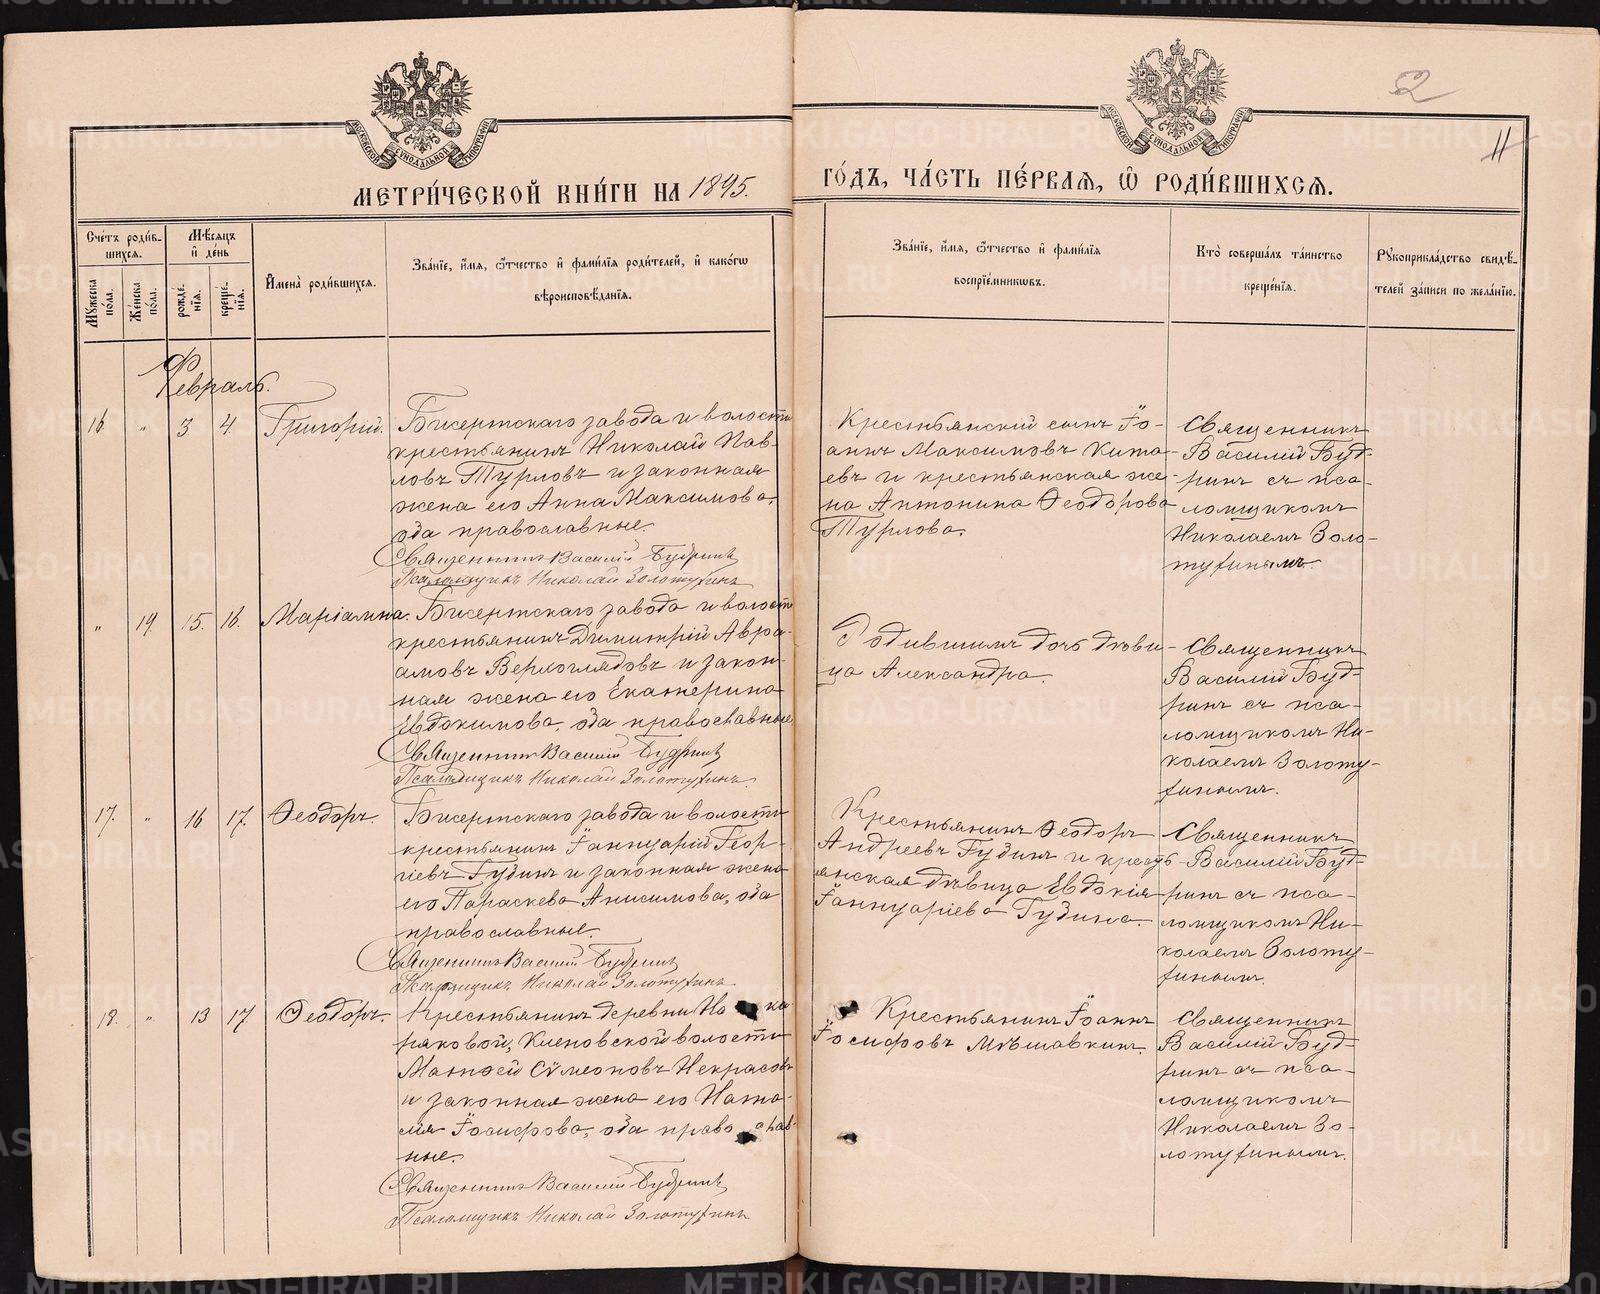 2
11
МЕТРИ́ЧЕСКОЙ КНИ́ГИ НА 1895.
ГО́ДЪ, ЧА́СТЬ ПЕ́РВАѦ, Ѡ҆ РОДИ́ВШИХСѦ.
МОСКОВСКОЙ СѴНОДАЛЬНОЙ ТИПОГРАФІИ
МОСКОВСКОЙ СѴНОДАЛЬНОЙ ТИПОГРАФІИ
Сче́тъ роди́в-
шихсѧ.
Мꙋжеска
пола.
Же́нска
по́ла.
Мѣ́сѧцъ
и҆ де́нь
рожде́-
нїѧ.
креще́-
нїѧ.
И҆мена̀ роди́вшихсѧ.
Зва́нїе, и҆́мѧ, ѻ҆́тчество и҆ фами́лїѧ роди́телей, и҆ како́гѡ
вѣроисповѣ́данїѧ.
Зва́нїе, и҆́мѧ, ѻ҆́тчество и҆ фами́лїѧ
воспрїе́мникѡвъ.
Кто̀ соверша́лъ та́инство
креще́нїѧ.
Рꙋкоприкла́дство свидѣ́-
телей за́писи по жела́нїю.
Февраль.
16 " 3 4. Григорій.
Бисертскаго завода и волости
крестьянинъ Николай Пав-
ловъ Турловъ и законная
жена его Анна Максимова,
оба православные.
Священникъ Василій Будринъ
Псаломщикъ Николай Золотухинъ
Крестьянскій сынъ Іо-
аннъ Максимовъ Кита-
евъ и крестьянская же-
на Антонина Ѳеодорова
Турлова.
Священникъ
Василій Буд-
ринъ съ пса-
ломщикомъ
Николаемъ Золо-
тухинымъ.
" 19. 15. 16. Маріамна.
Бисертскаго завода и волости
крестьянинъ Димитрій Авра-
амовъ Верхоглядовъ и закон-
ная жена его Екатерина
Евдокимова, оба православные
Священникъ Василій Будринъ
Псаломщикъ Николай Золотухинъ.
Родившимъ дочь дѣви-
ца Александра.
Священникъ
Василій Буд-
ринъ съ пса-
ломщикомъ Ни-
колаемъ Золоту-
хинымъ.
17. " 16 17. Ѳеодоръ.
Бисертскаго завода и волости
крестьянинъ Іаннуарій Геор-
гіевъ Гудинъ и законная жена
его Параскева Анисимова, оба
православные.
Священникъ Василій Будринъ
Псаломщикъ Николай Золотухинъ
Крестьянинъ Ѳеодоръ
Андреевъ Гудинъ и кресть-
янская дѣвица Евдокія
Іаннуаріева Гудина.
Священникъ
Василій Буд-
ринъ съ пса-
ломщикомъ Ни-
колаемъ Золоту-
хинымъ.
18. " 13 17. Ѳеодоръ.
Крестьянинъ деревни
ряковой, Кленовской волости
Матѳей Сѵмеоновъ Некрасовъ
и законная жена его Ната-
лія Іосифова, оба православ-
ные.
Священникъ Василій Будринъ
Псаломщикъ Николай Золотухинъ
Крестьянинъ Іоаннъ
Іосифовъ Мѣшавкинъ.
Священникъ
Василій Буд-
ринъ съ пса-
ломщикомъ
Николаемъ Зо-
лотухинымъ.
METRIKI.GASO-URAL.RU